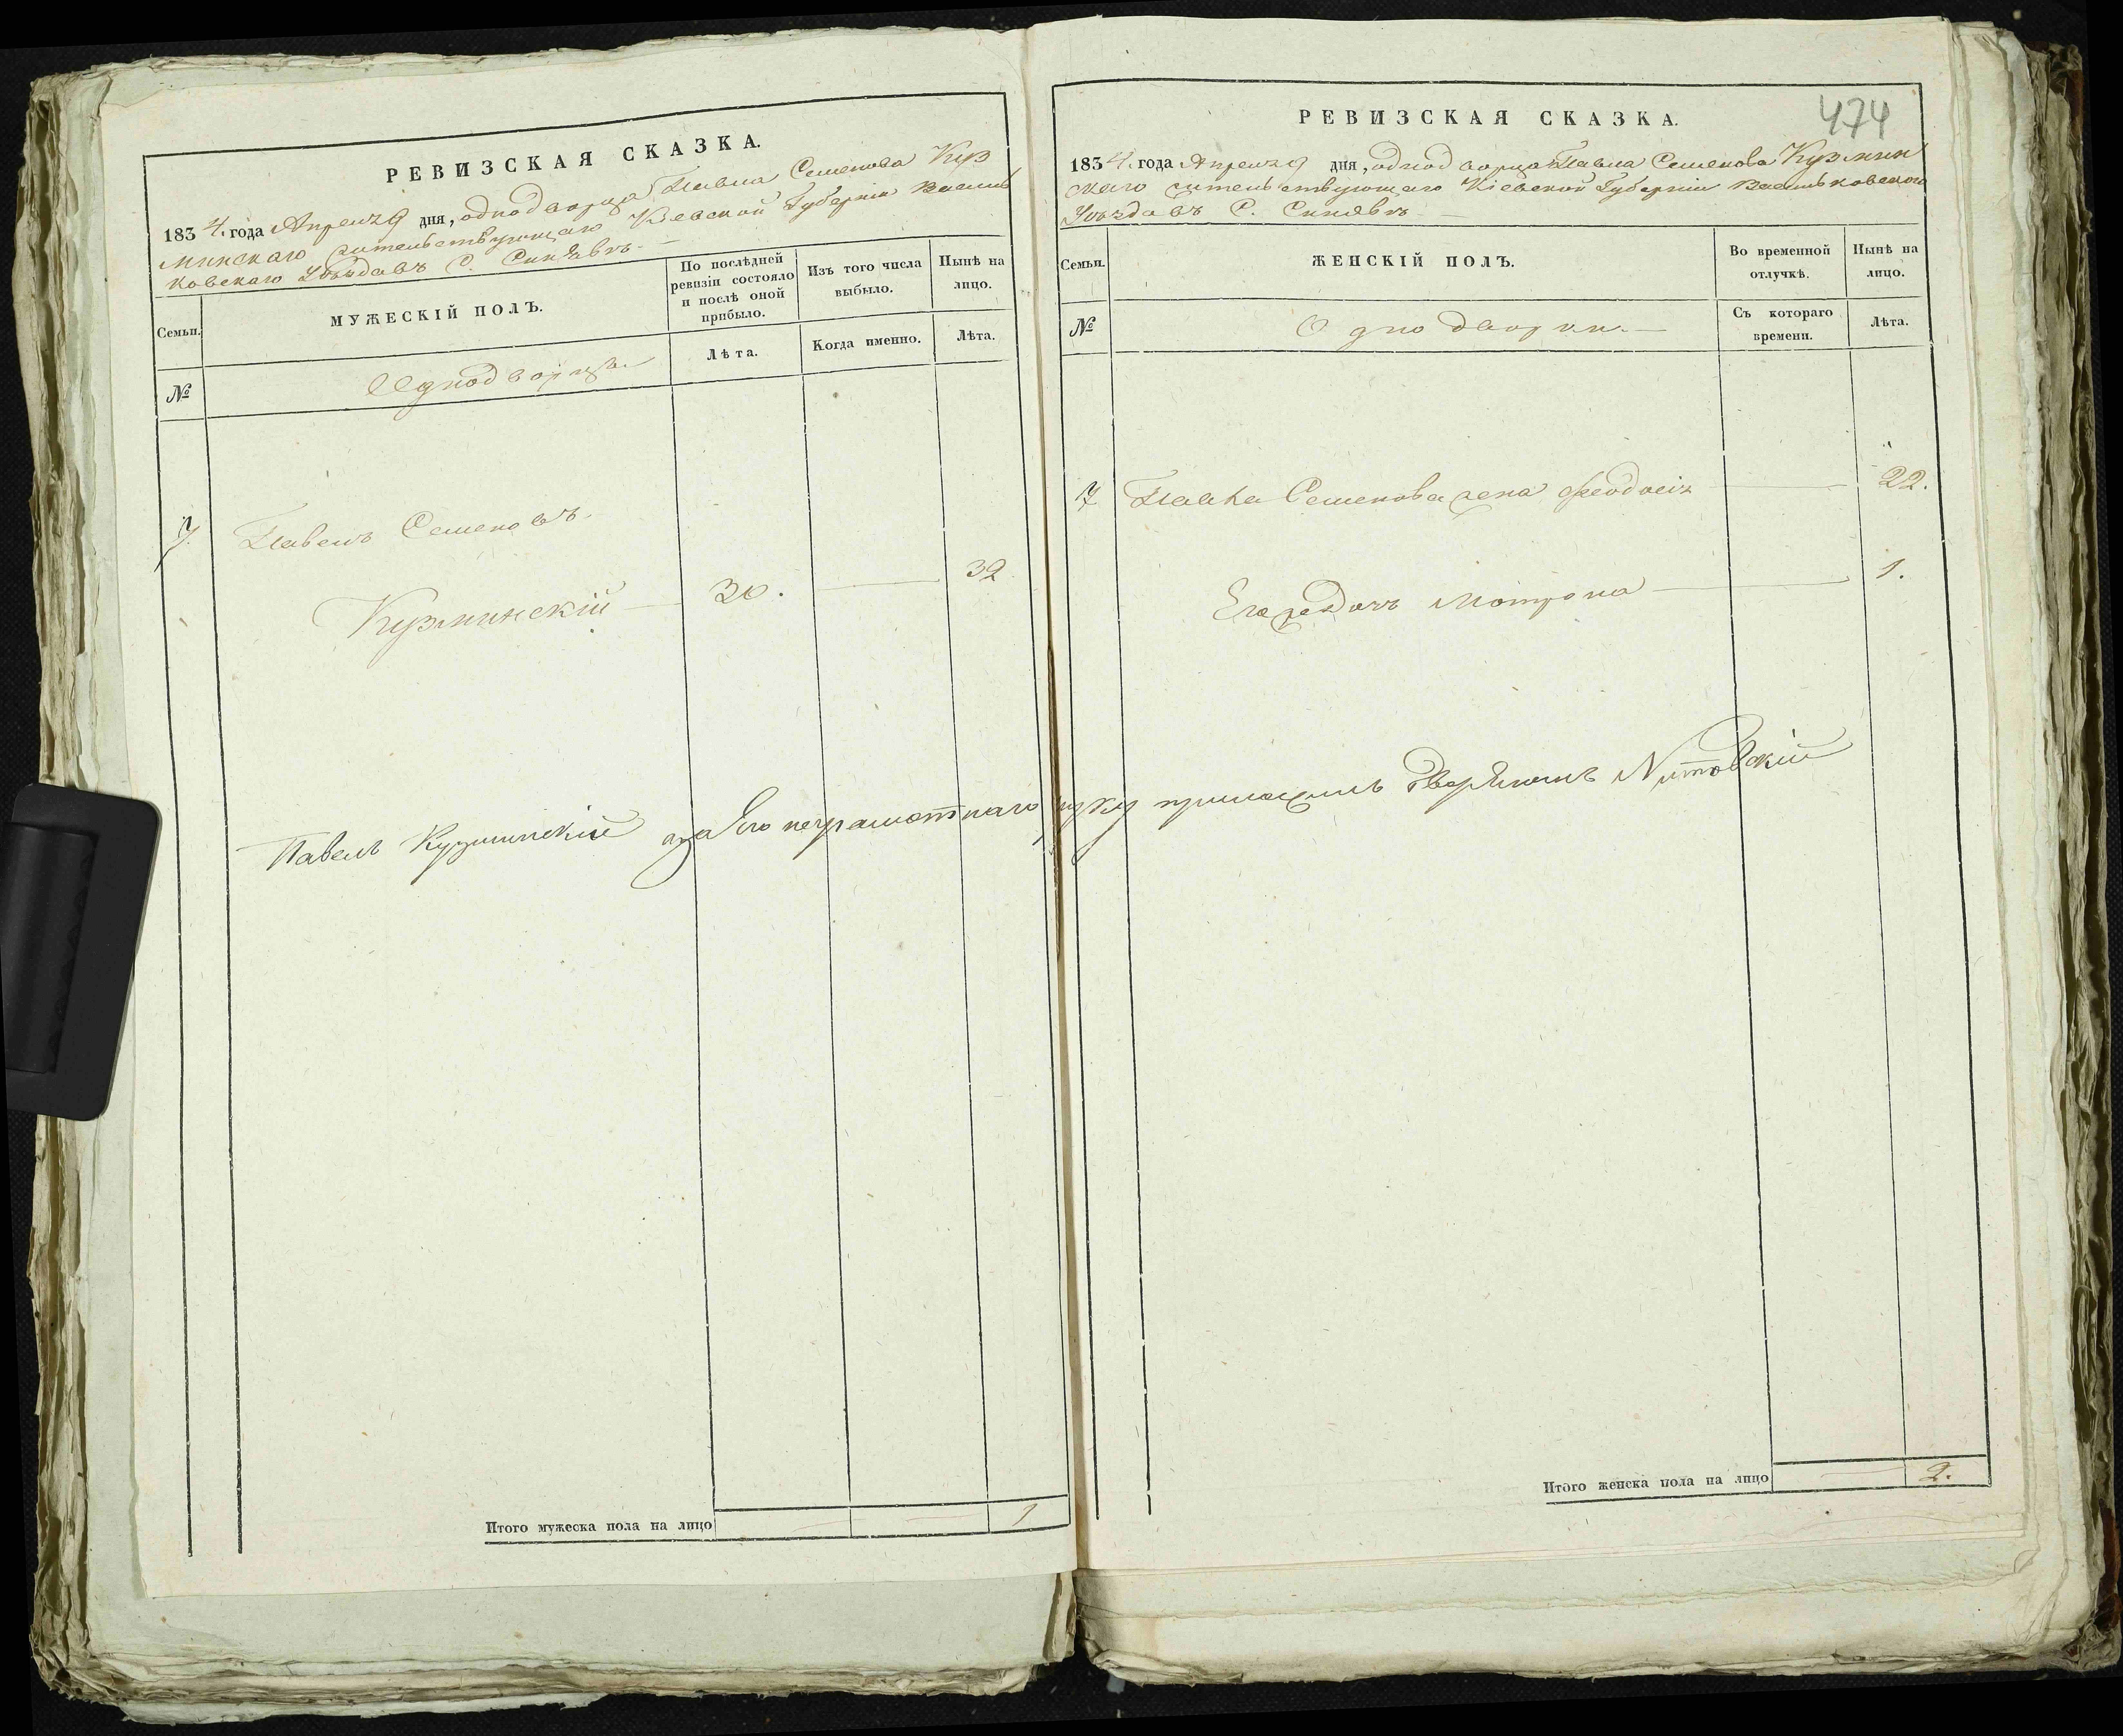 РЕВИЗСКАЯ СКАЗКА.
1834. года Апреля 9 дня, однодворца Павла Семенова Куз
минскаго жительствующаго Кіевской Губерніи Василь
ковскаго Уѣзда въ С. Синявѣ
Семьи.
МУЖЕСКІЙ ПОЛЪ.
По послѣдней ревизіи состояло и послѣ оной прибыло.
Изъ того числа выбыло.
Нынѣ на лицо.
№
Однодворцы
Лѣта.
Когда именно.
Лѣта.
7. Павелъ Семеновъ.
Кузминскій 30. 32
Павелъ Кузминскій за Его неграмотнаго руку приложилъ Дворянинъ
Итого мужеска пола на лицо 1
474
РЕВИЗСКАЯ СКАЗКА.
1834. года Апреля 9 дня, однодворца Павла Семенова Кузмин
скаго жительствующаго Кіевской Губерніи Васильковскаго
Уѣзда въ С. Синявѣ
Семьи.
ЖЕНСКІЙ ПОЛЪ.
Во временной отлучкѣ.
Нынѣ на лицо.
№
Однодворки
Съ котораго времени.
Лѣта.
7 Павла Семенова жена Феодосія 22.
Его дочь Мотрона 1.
Итого женска пола на лицо 2.